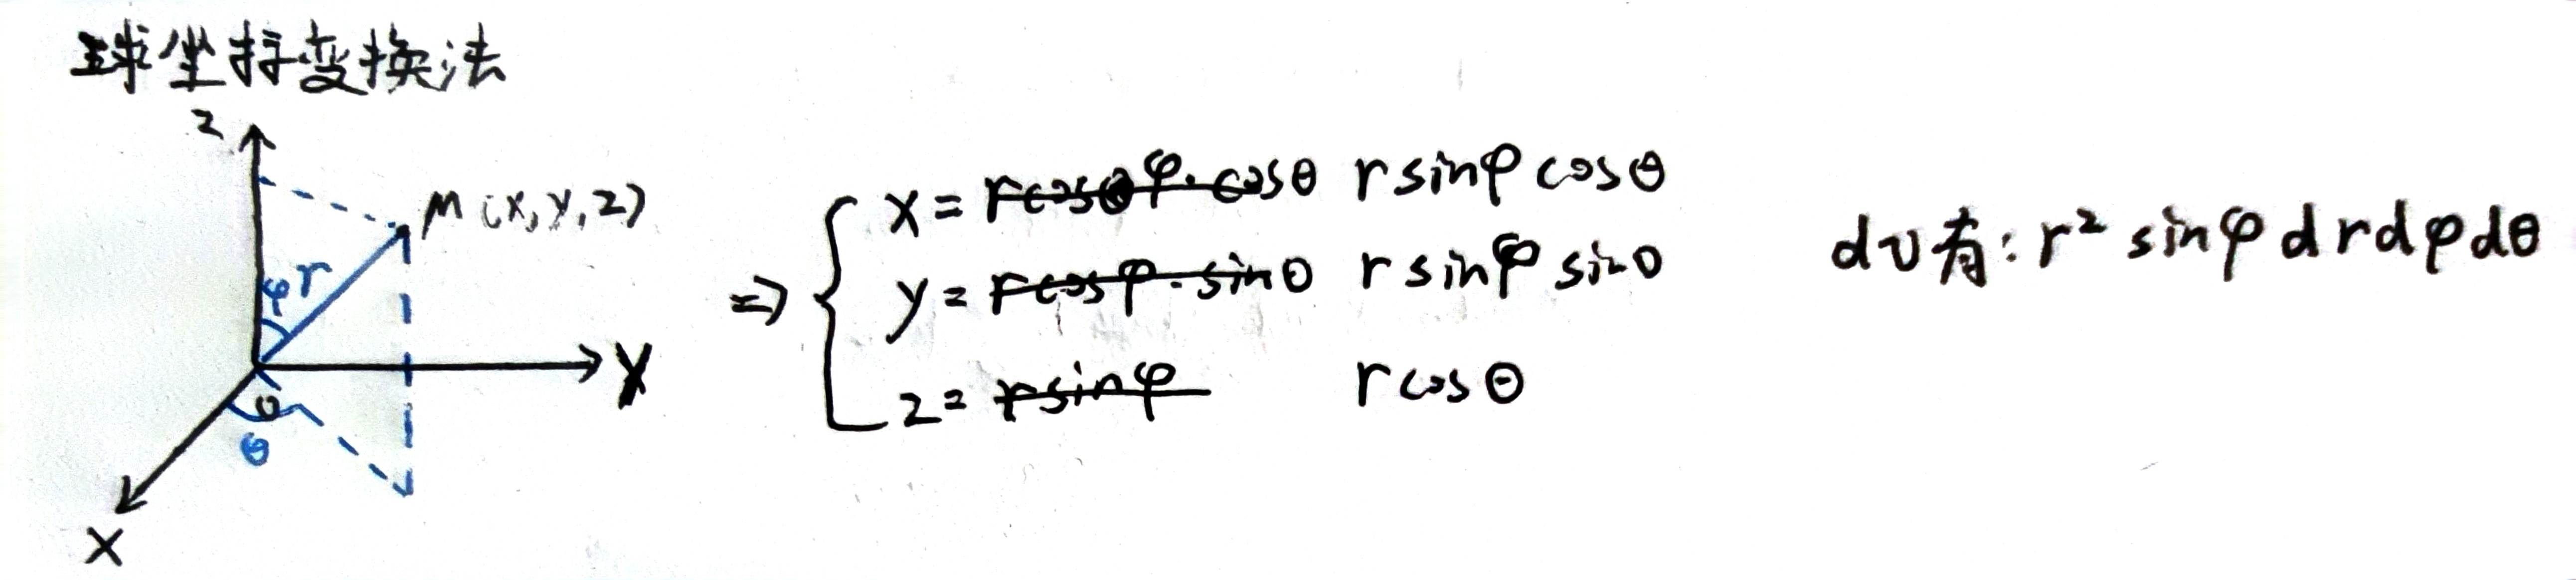 球坐标变换法
z
M(x,y,z)
φ r
y
θ
θ
x
⇒ { x = rcosθφ·cosθ r sinφ cosθ
y = rcosφ·sinθ r sinφ sinθ
z = rsinφ r cosθ
dv有: r² sinφ dr dφ dθ